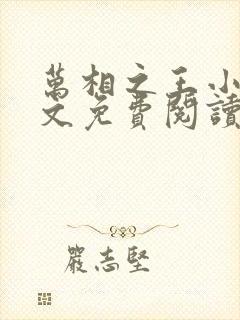 萬相之王小
文免費閱讀
嚴志堅